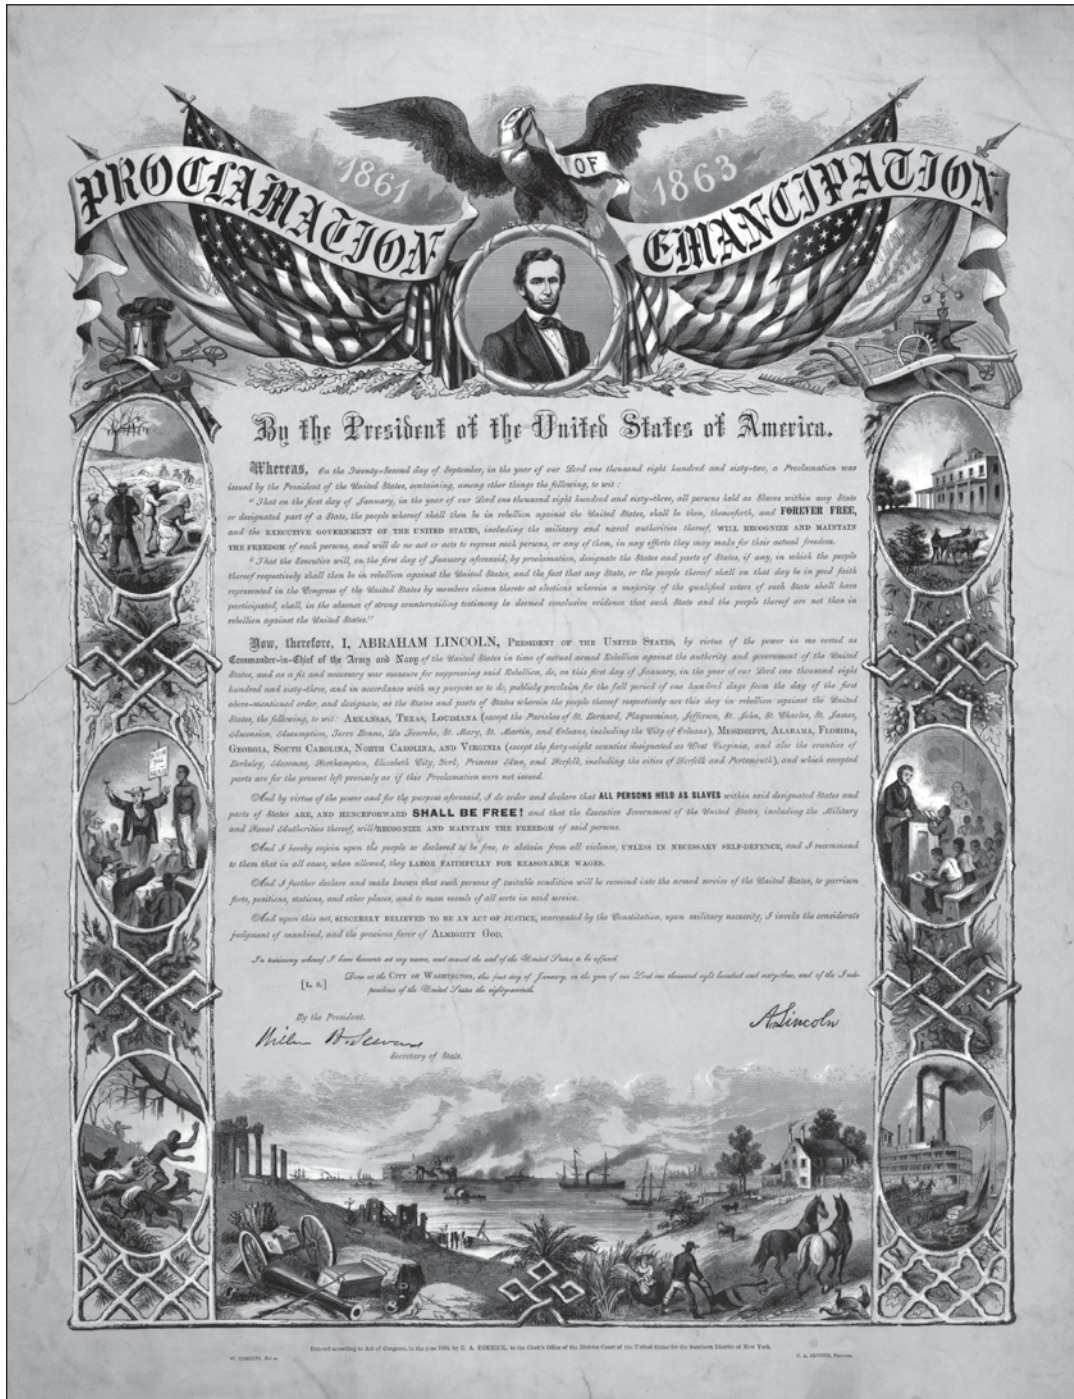 PROCLAMATION OF EMANCIPATION
1861 1863
By the President of the United States of America.
Whereas, On the Twenty-Second day of September, in the year of our Lord one thousand eight hundred and sixty-two, a Proclamation was
issued by the President of the United States, containing, among other things the following, to wit:
"That on the first day of January, in the year of our Lord one thousand eight hundred and sixty-three, all persons held as Slaves within any State
or designated part of a State, the people whereof shall then be in rebellion against the United States, shall be then, thenceforth, and FOREVER FREE,
and the EXECUTIVE GOVERNMENT OF THE UNITED STATES, including the military and naval authorities thereof, WILL RECOGNIZE AND MAINTAIN
THE FREEDOM of such persons, and will do no act or acts to repress such persons, or any of them, in any efforts they may make for their actual freedom.
"That the Executive will, on the first day of January aforesaid, by proclamation, designate the States and parts of States, if any, in which the people
thereof respectively shall then be in rebellion against the United States, and the fact that any State, or the people thereof shall on that day be in good faith
represented in the Congress of the United States by members chosen thereto at elections wherein a majority of the qualified voters of such State shall have
participated, shall, in the absence of strong countervailing testimony be deemed conclusive evidence that such State and the people thereof are not then in
rebellion against the United States."
Now, therefore, I, ABRAHAM LINCOLN, PRESIDENT OF THE UNITED STATES, by virtue of the power in me vested as
Commander-in-Chief of the Army and Navy of the United States in time of actual armed Rebellion against the authority and government of the United
States, and as a fit and necessary war measure for suppressing said Rebellion, do, on this first day of January, in the year of our Lord one thousand eight
hundred and sixty-three, and in accordance with my purpose so to do, publicly proclaim for the full period of one hundred days from the day of the first
above-mentioned order, and designate, as the States and parts of States wherein the people thereof respectively are this day in rebellion against the United
States, the following, to wit: ARKANSAS, TEXAS, LOUISIANA (except the Parishes of St. Bernard, Plaquemines, Jefferson, St. John, St. Charles, St. James,
Ascension, Assumption, Terre Bonne, La Fourche, St. Mary, St. Martin, and Orleans, including the City of Orleans), MISSISSIPPI, ALABAMA, FLORIDA,
GEORGIA, SOUTH CAROLINA, NORTH CAROLINA, AND VIRGINIA (except the forty-eight counties designated as West Virginia, and also the counties of
Berkeley, Accomac, Northampton, Elizabeth City, York, Princess Ann, and Norfolk, including the cities of Norfolk and Portsmouth), and which excepted
parts are for the present left precisely as if this Proclamation were not issued.
And by virtue of the power and for the purpose aforesaid, I do order and declare that ALL PERSONS HELD AS SLAVES within said designated States and
parts of States ARE, AND HENCEFORWARD SHALL BE FREE! and that the Executive Government of the United States, including the Military
and Naval Authorities thereof, will RECOGNIZE AND MAINTAIN THE FREEDOM of said persons.
And I hereby enjoin upon the people so declared to be free, to abstain from all violence, UNLESS IN NECESSARY SELF-DEFENCE, and I recommend
to them that in all cases, when allowed, they LABOR FAITHFULLY FOR REASONABLE WAGES.
And I further declare and make known that such persons of suitable condition will be received into the armed service of the United States, to garrison
forts, positions, stations, and other places, and to man vessels of all sorts in said service.
And upon this act, SINCERELY BELIEVED TO BE AN ACT OF JUSTICE, warranted by the Constitution, upon military necessity, I invoke the considerate
judgment of mankind, and the gracious favor of ALMIGHTY GOD.
In testimony whereof I have hereunto set my name, and caused the seal of the United States to be affixed.
[L. S.] Done at the CITY OF WASHINGTON, this first day of January, in the year of our Lord one thousand eight hundred and sixty-three, and of the Inde-
pendence of the United States the eighty-seventh.
By the President.
A. Lincoln
William H. Seward
Secretary of State.
Entered according to Act of Congress, in the year 1864, by in the Clerk's Office of the District Court of the United States for the Southern District of New York.